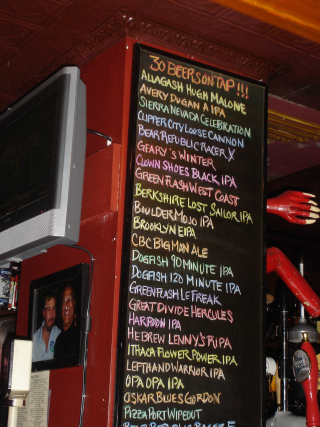 30 BEERS ON TAP !!!
ALLAGASH HUGH MALONE
AVERY DUGANA IPA
SIERRA NEVADA CELEBRATION
CLIPPER CITY LOOSE CANNON
BEAR REPUBLIC RACER X
GEARY'S WINTER
CLOWN SHOES BLACK IPA
GREEN FLASH WEST COAST
BERKSHIRE LOST SAILOR IPA
BOULDER MOJO IPA
BROOKLYN EIPA
CBC BIG MAN ALE
DOGFISH 90 MINUTE IPA
DOGFISH 120 MINUTE IPA
GREENFLASH LE FREAK
GREAT DIVIDE HERCULES
HARPOON IPA
HE'BREW LENNY'S RIPA
ITHACA FLOWER POWER IPA
LEFTHAND WARRIOR IPA
OPA OPA IPA
OSKAR BLUES GORDON
PIZZA PORT WIPEOUT